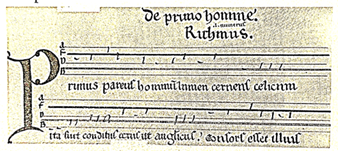 de primo homine.
Rithmus.
Primus parens hominū lumen cernens celicum
Ita fuit conditus cetus ut angelicus, Consors esset illius